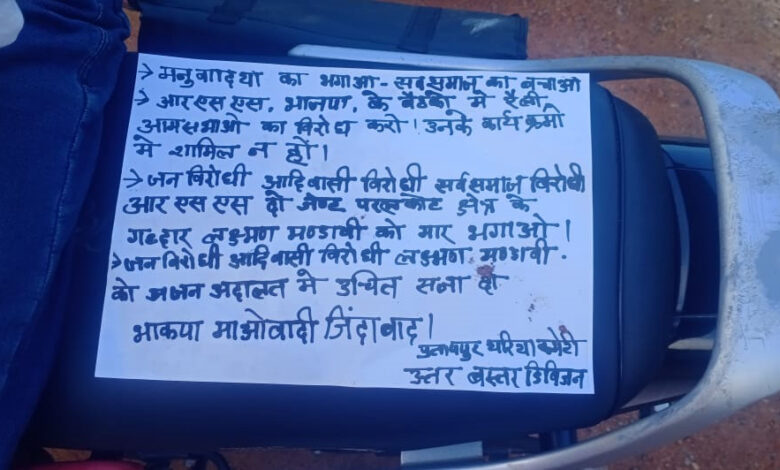 → मनुवादियों का भगाओ - सर्वसमाज का बचाओ
→ आर एस एस, भाजपा, के बैठकों मे रैली,
आमसभाओ का विरोध करो। उनके कार्यक्रमो
मे शामिल न हो।
→ जन विरोधी आदिवासी विरोधी सर्वसमाज विरोधी
आर एस एस दो परलकोट क्षेत्र के
गद्दार लक्ष्मण मण्डावी को मार भगाओ।
→ जन विरोधी आदिवासी विरोधी लक्ष्मण मण्डावी.
को जन अदालत मे उचित सजा दो
भाकपा माओवादी जिंदाबाद।
एरिया कमेटी
उत्तर बस्तर डिविजन